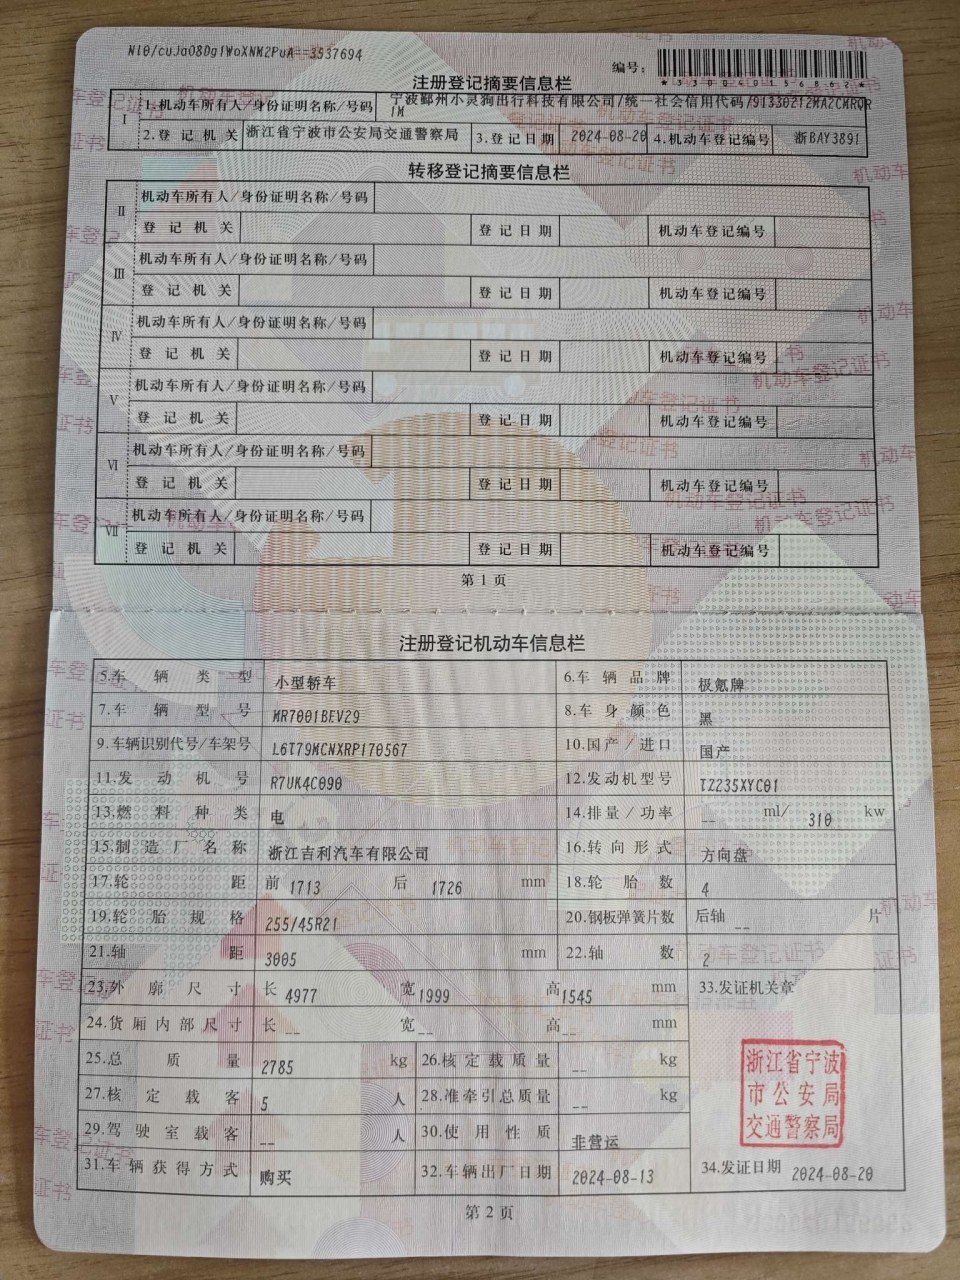 Nl0/cuJaO8Dg1WoXNM2PuA==3537694
编号:
*330040156862*
注册登记摘要信息栏
I 1.机动车所有人/身份证明名称/号码 宁波鄞州小灵狗出行科技有限公司/统一社会信用代码/91330212MA2CMRQR1M
2.登记机关 浙江省宁波市公安局交通警察局 3.登记日期 2024-08-20 4.机动车登记编号 浙BAY3891
转移登记摘要信息栏
II 机动车所有人/身份证明名称/号码
登记机关 登记日期 机动车登记编号
III 机动车所有人/身份证明名称/号码
登记机关 登记日期 机动车登记编号
IV 机动车所有人/身份证明名称/号码
登记机关 登记日期 机动车登记编号
V 机动车所有人/身份证明名称/号码
登记机关 登记日期 机动车登记编号
VI 机动车所有人/身份证明名称/号码
登记机关 登记日期 机动车登记编号
VII 机动车所有人/身份证明名称/号码
登记机关 登记日期 机动车登记编号
第1页
注册登记机动车信息栏
5.车辆类型 小型轿车 6.车辆品牌 极氪牌
7.车辆型号 MR7001BEV29 8.车身颜色 黑
9.车辆识别代号/车架号 L6T79MCNXRP170567 10.国产/进口 国产
11.发动机号 R7UK4C090 12.发动机型号 TZ235XYC01
13.燃料种类 电 14.排量/功率 -- ml/ 310 kw
15.制造厂名称 浙江吉利汽车有限公司 16.转向形式 方向盘
17.轮距 前 1713 后 1726 mm 18.轮胎数 4
19.轮胎规格 255/45R21 20.钢板弹簧片数 后轴 -- 片
21.轴距 3005 mm 22.轴数 2
23.外廓尺寸 长 4977 宽 1999 高 1545 mm 33.发证机关章
24.货厢内部尺寸 长 -- 宽 -- 高 -- mm
25.总质量 2785 kg 26.核定载质量 -- kg
27.核定载客 5 人 28.准牵引总质量 -- kg
29.驾驶室载客 -- 人 30.使用性质 非营运
浙江省宁波
市公安局
交通警察局
31.车辆获得方式 购买 32.车辆出厂日期 2024-08-13 34.发证日期 2024-08-20
第2页